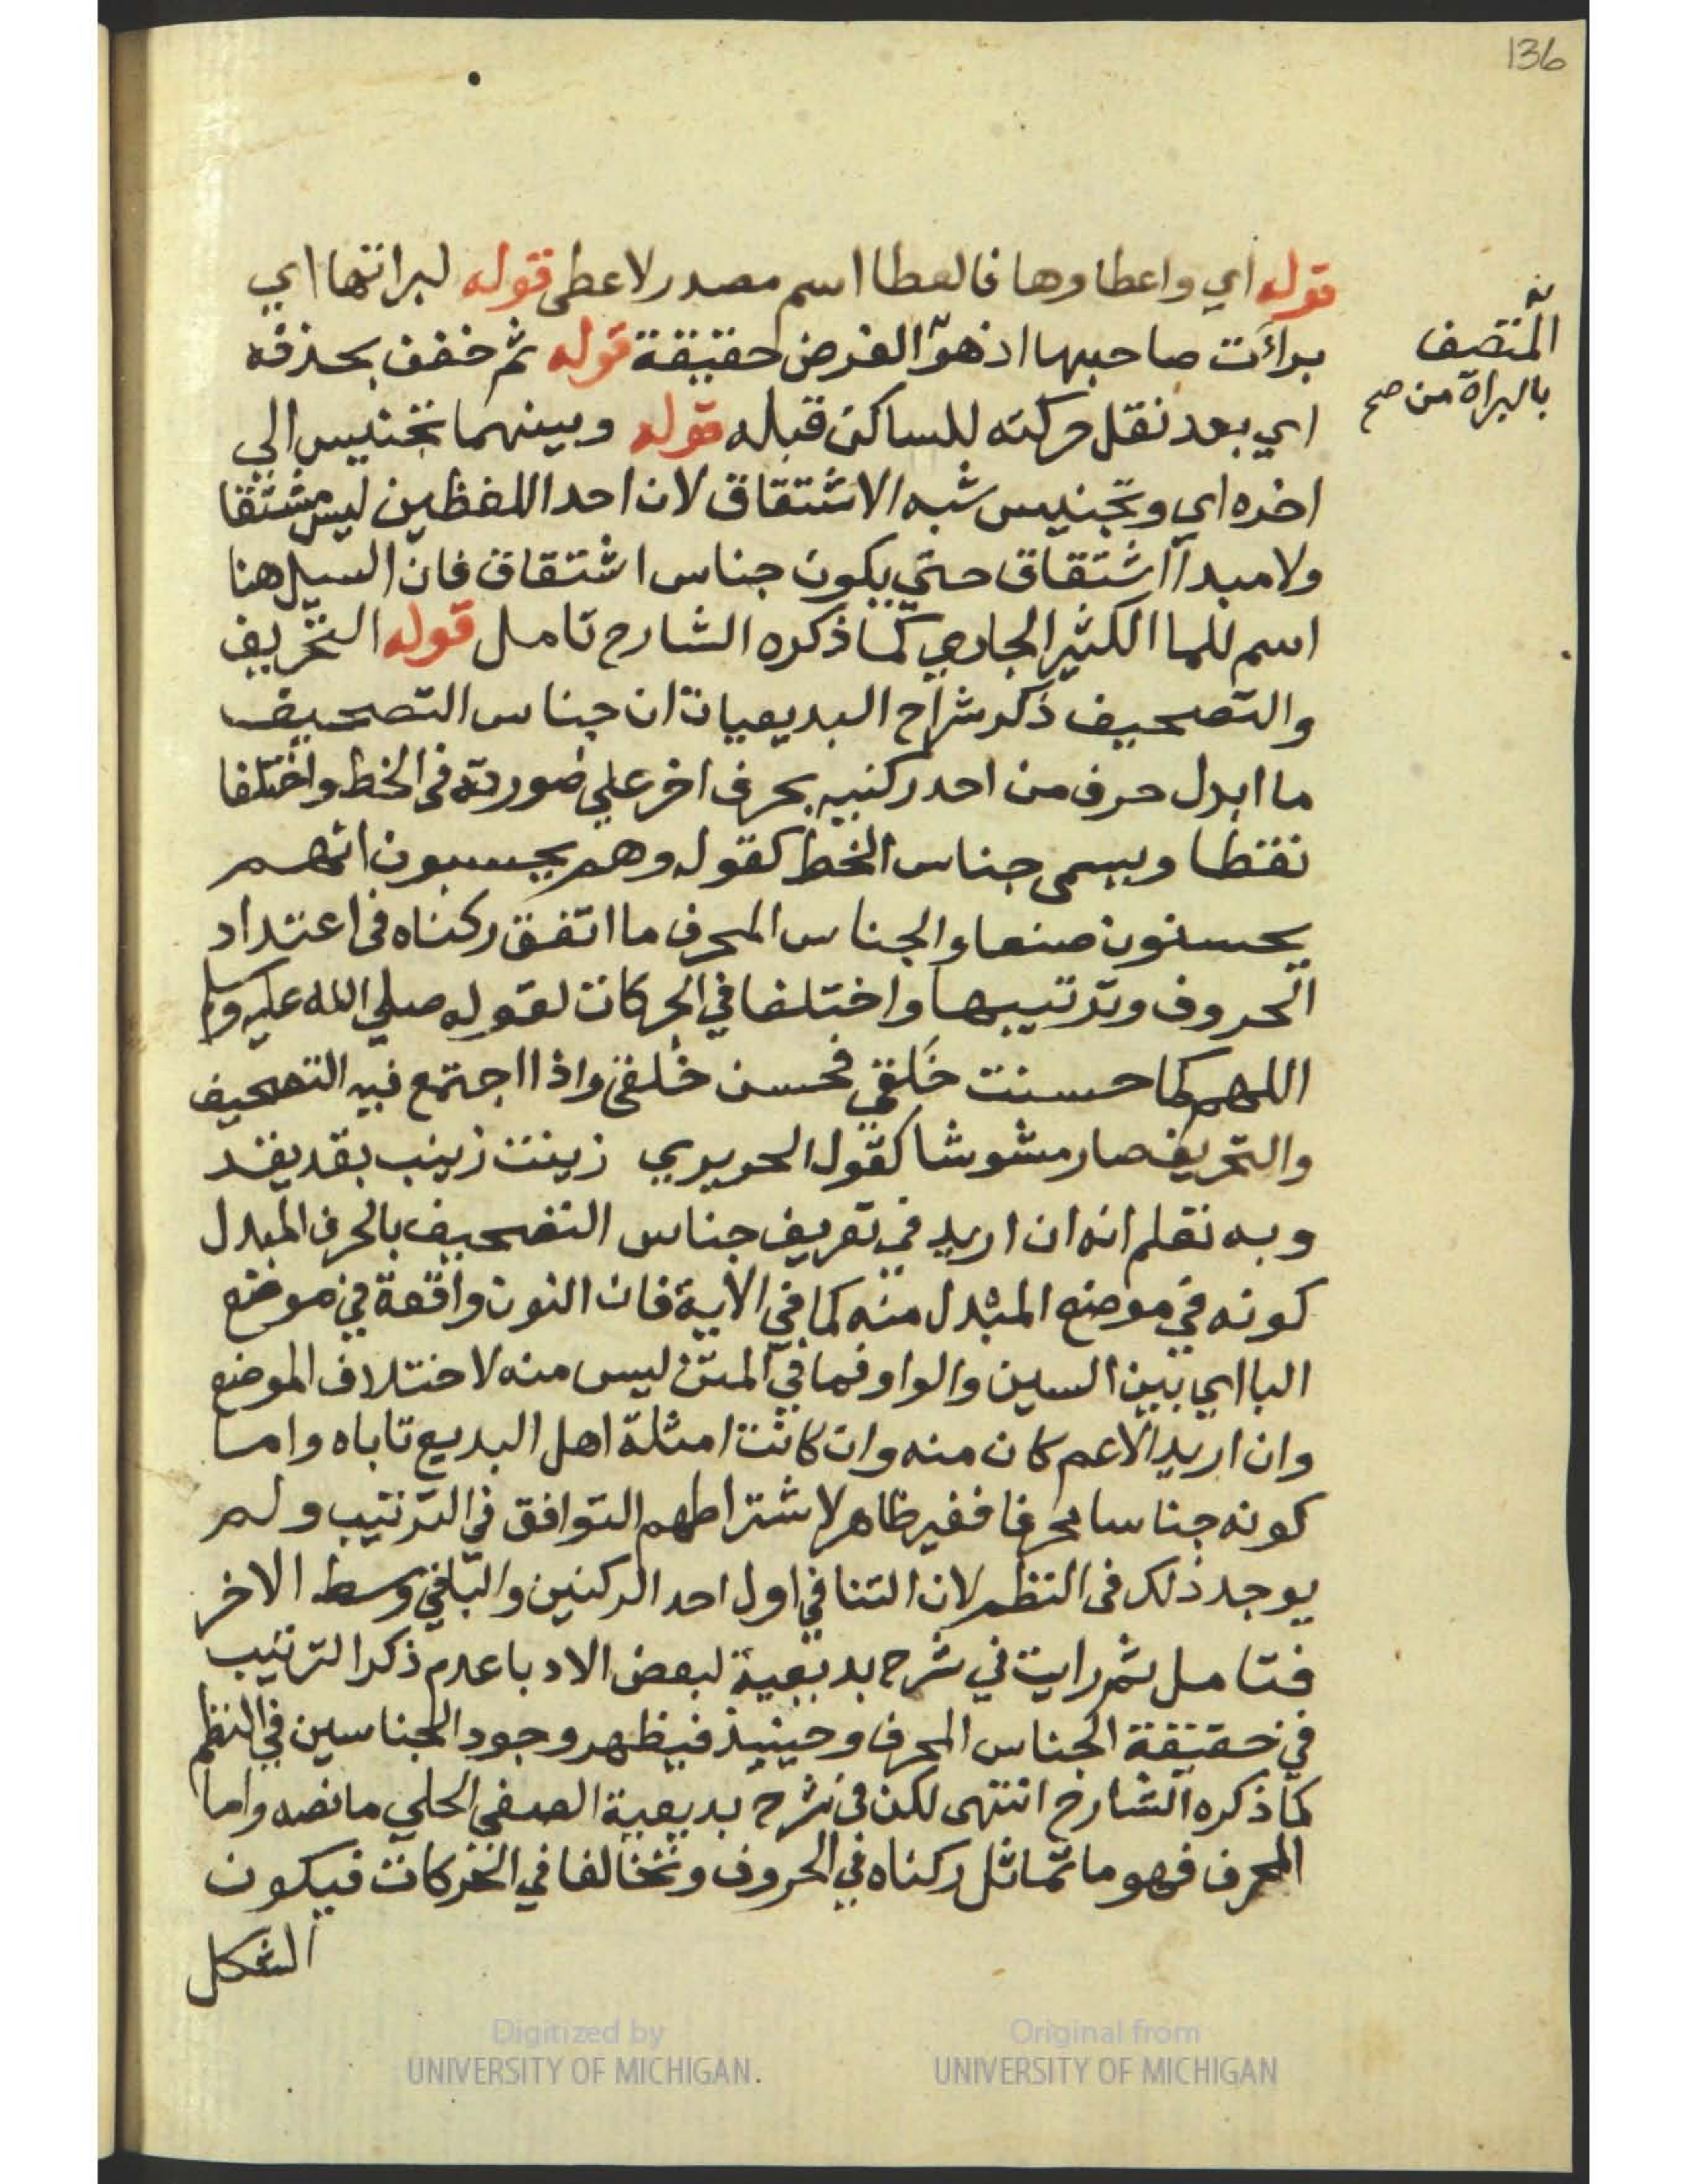 136
قوله اي واعطاوها فالعطا اسم مصدر لاعطى قوله لبراتها اي
برأت صاحبها اذ هو الغرض حقيقة قوله ثم خفف بحذفه
المتصف
بالبراة من صح
اي بعد نقل حركته للساكن قبله قوله وبينهما تجنيس الي
اخره اي وتجنيس شبه الاشتقاق لان احد اللفظين ليس مشتقا
ولا مبدأ اشتقاق حتي يكون جناس اشتقاق فان السيل هنا
اسم للما الكثير الجاري كما ذكره الشارح تامل قوله التحريف
والتصحيف ذكر شراح البديعيات ان جناس التصحيف
ما ابدل حرف من احد ركنيه بحرف اخر علي صورته في الخط واختلفا
نقطا ويسمى جناس الخط كقوله وهم يحسبون انهم
يحسنون صنعا والجناس المحرف ما اتفق ركناه في اعتداد
الحروف وترتيبها واختلفا في الحركات لقوله صلي الله عليه وسلم
اللهم كما حسنت خَلقي فحسن خُلقي واذا اجتمع فيه التصحيف
والتحريف صار مشوشا كقول الحريري زينت زينب بقد يقد
وبه تعلم انه ان اريد في تعريف جناس التصحيف بالحرف المبدل
كونه في موضع المبدل منه كما في الاية فان النون واقعة في موضع
البا اي بين السين والواو فما في المتن ليس منه لاختلاف الموضع
وان اريد الاعم كان منه وان كانت امثلة اهل البديع تاباه واما
كونه جناسا محرفا فغير ظاهر لاشتراطهم التوافق في الترتيب ولم
يوجد ذلك في النظم لان التا في اول احد الركنين والبا في وسط الاخر
فتامل ثم رايت في شرح بديعية لبعض الادبا عدم ذكر الترتيب
في حقيقة الجناس المحرف وحينيذ فيظهر وجود الجناسين في النظم
كما ذكره الشارح انتهى لكن في شرح بديعية الصفي الحلي ما نصه واما
المحرف فهو ما تماثل ركناه في الحروف وتخالفا في الحركات فيكون
الشكل
Digitized by
UNIVERSITY OF MICHIGAN.
Original from
UNIVERSITY OF MICHIGAN